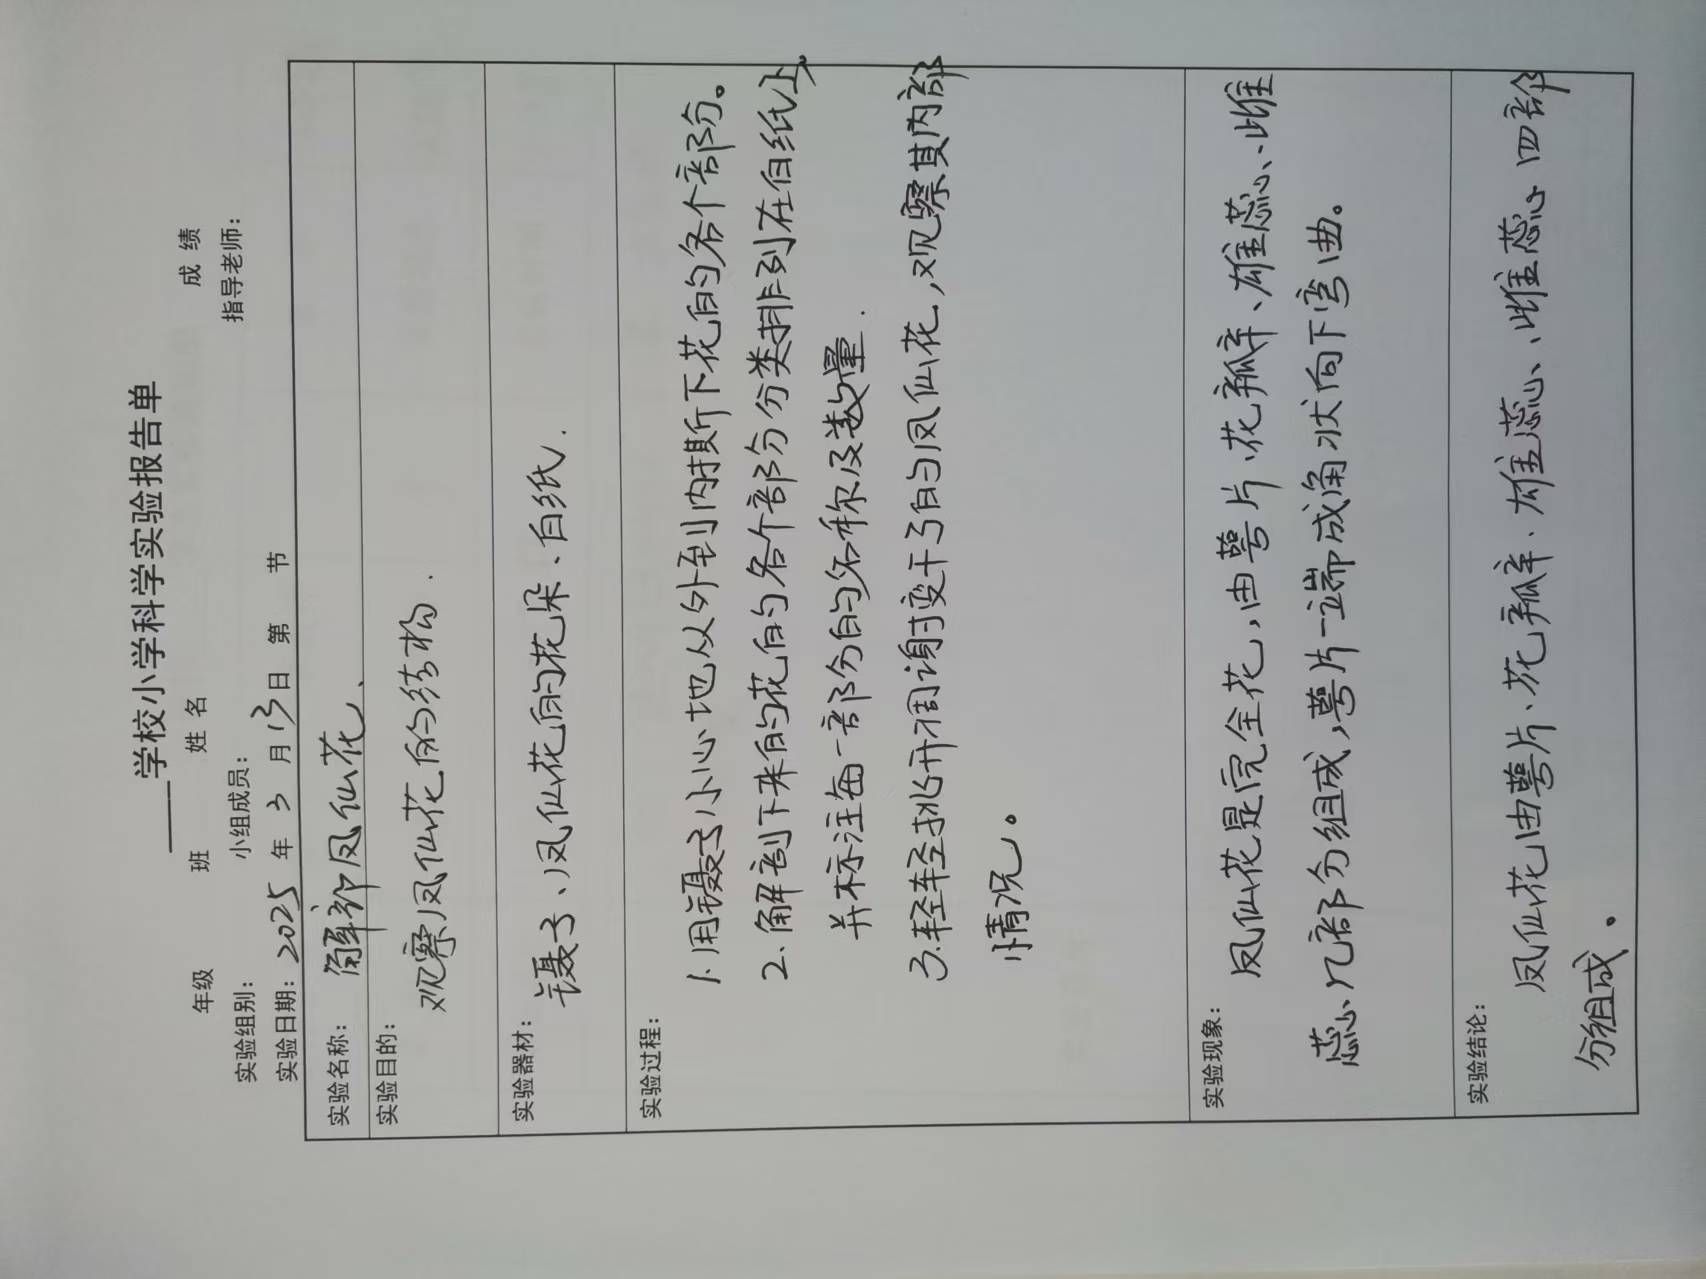 学校小学科学实验报告单
年级 班 姓名 成绩
实验组别： 小组成员： 指导老师：
实验日期：2025年3月13日 第 节
实验名称：解剖凤仙花、
实验目的：
观察凤仙花的结构．
实验器材：
镊子、凤仙花的花朵、白纸．
实验过程：
1.用镊子小心地从外到内撕下花的各个部分。
2.解剖下来的花的各个部分分类排列在白纸上，
并标注每一部分的名称及数量．
3.轻轻挑开凋谢变干了的凤仙花，观察其内部
情况。
实验现象：
凤仙花是完全花，由萼片、花瓣、雄蕊、雌
蕊、几部分组成，萼片一端成角状向下弯曲。
实验结论：
凤仙花由萼片、花瓣、雄蕊、雌蕊、四部
分组成。